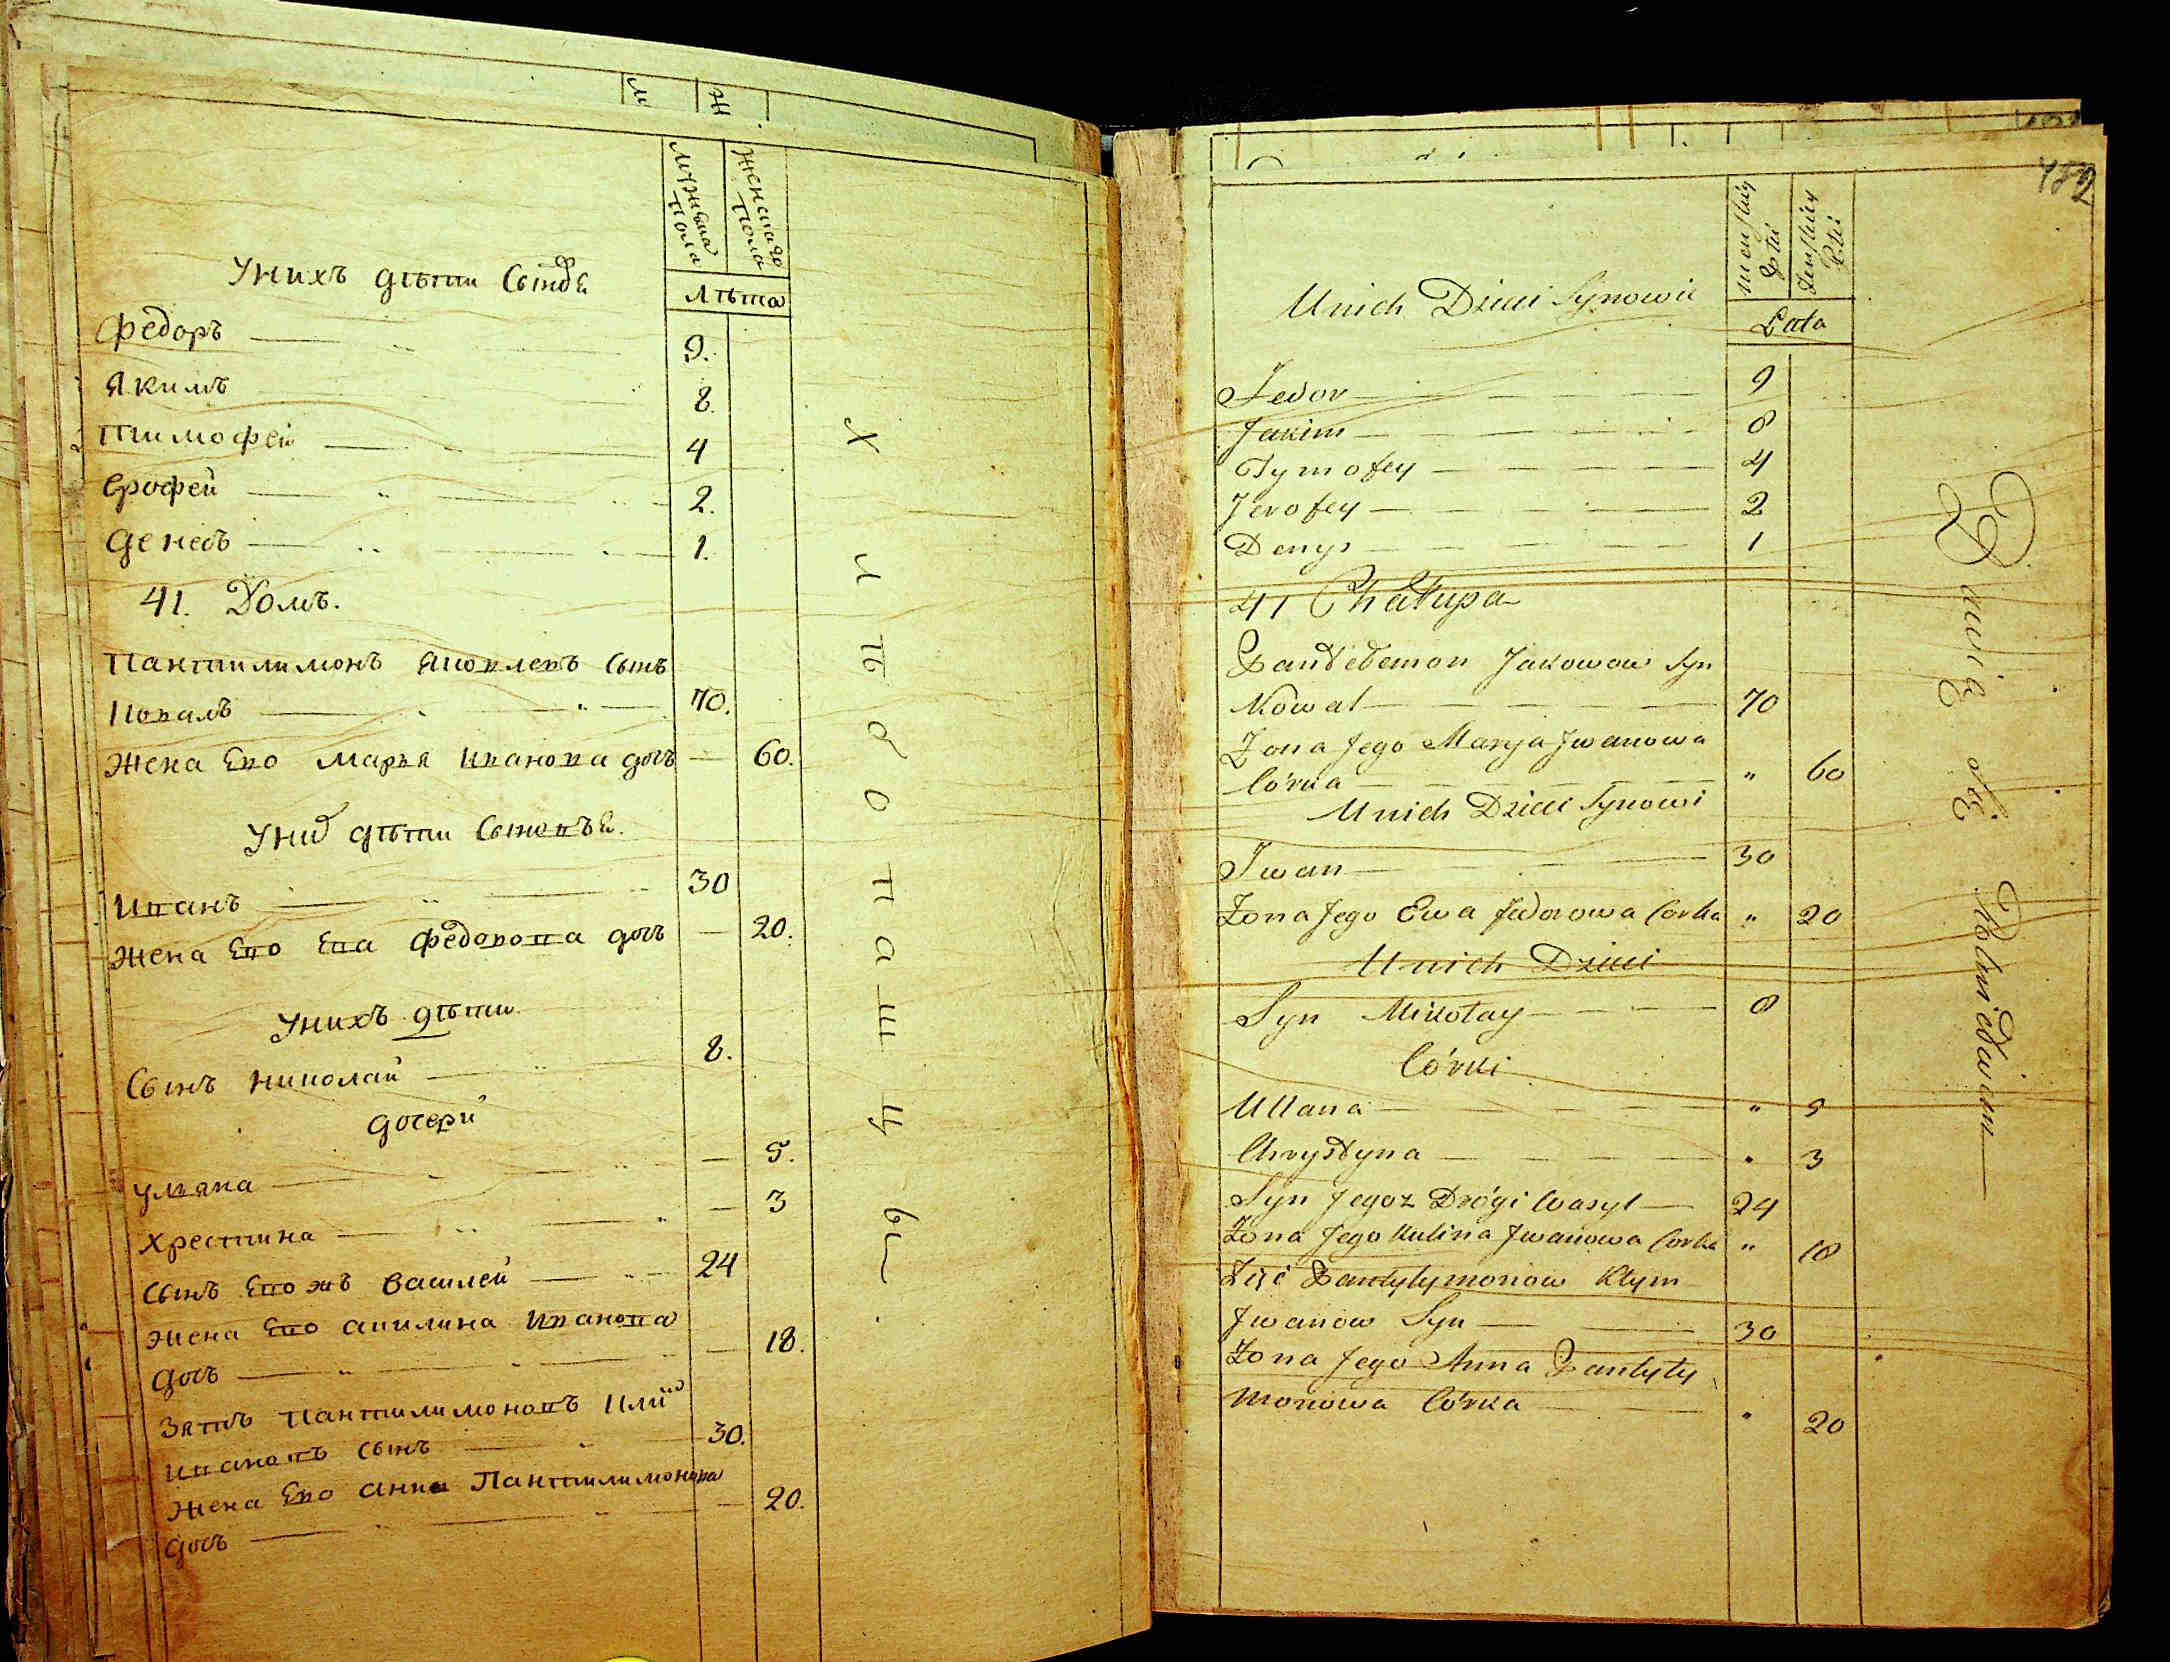 М
Ж
Мужеска пола
Женскаго пола
Лѣта
У нихъ дѣти Сынове
Федоръ 9.
Якимъ 8
Тимофей 4
Ерофей 2.
Денесъ 1.
41. Домъ.
Пантилимонъ Яковлевъ Сынъ
Ковалъ 70.
Жена Его Марья Иванова дочь — 60.
У них дѣти Сыновѣя.
Иванъ 30
Жена Его Ева Федорова дочь — 20.
У нихъ дѣти
Сынъ Николай 8.
дочери
Ульяна — 5.
Христина — 3
Сынъ Его жъ Василей 24
Жена Его Акилина Иванова
дочь — 18.
Зять Пантилимоновъ Клим
Ивановъ Сынъ 30.
Жена Его Анна Пантилимонова
дочь — 20.
Хлѣбопашцы.
482
Mouskiey Płci
Żenskiey Płci
Lata
U nich Dzieci Synowie
Fedor 9
Jakim 8
Tymofey 4
Jerofey 2
Denys 1
41 Chałupa
Pantelemon Jakowow Syn
Kowal 70
Żona Jego Marya Jwanowa
Córka " 60
U nich Dzieci Synowi
Jwan 30
Żona Jego Ewa Fedorowa Corka " 20
U nich Dzieci
Syn Mikołay 8
Córki
Ullana " 5
Chrystyna " 3
Syn Jegoz Drógi Wasyl 24
Żona Jego Kulina Jwanowa Corka " 18
Zięć Pantylymonow Kłym
Jwanow Syn 30
Żona Jego Anna Pantyly
monowa Córka " 20
Bawią Się Rolnictwem